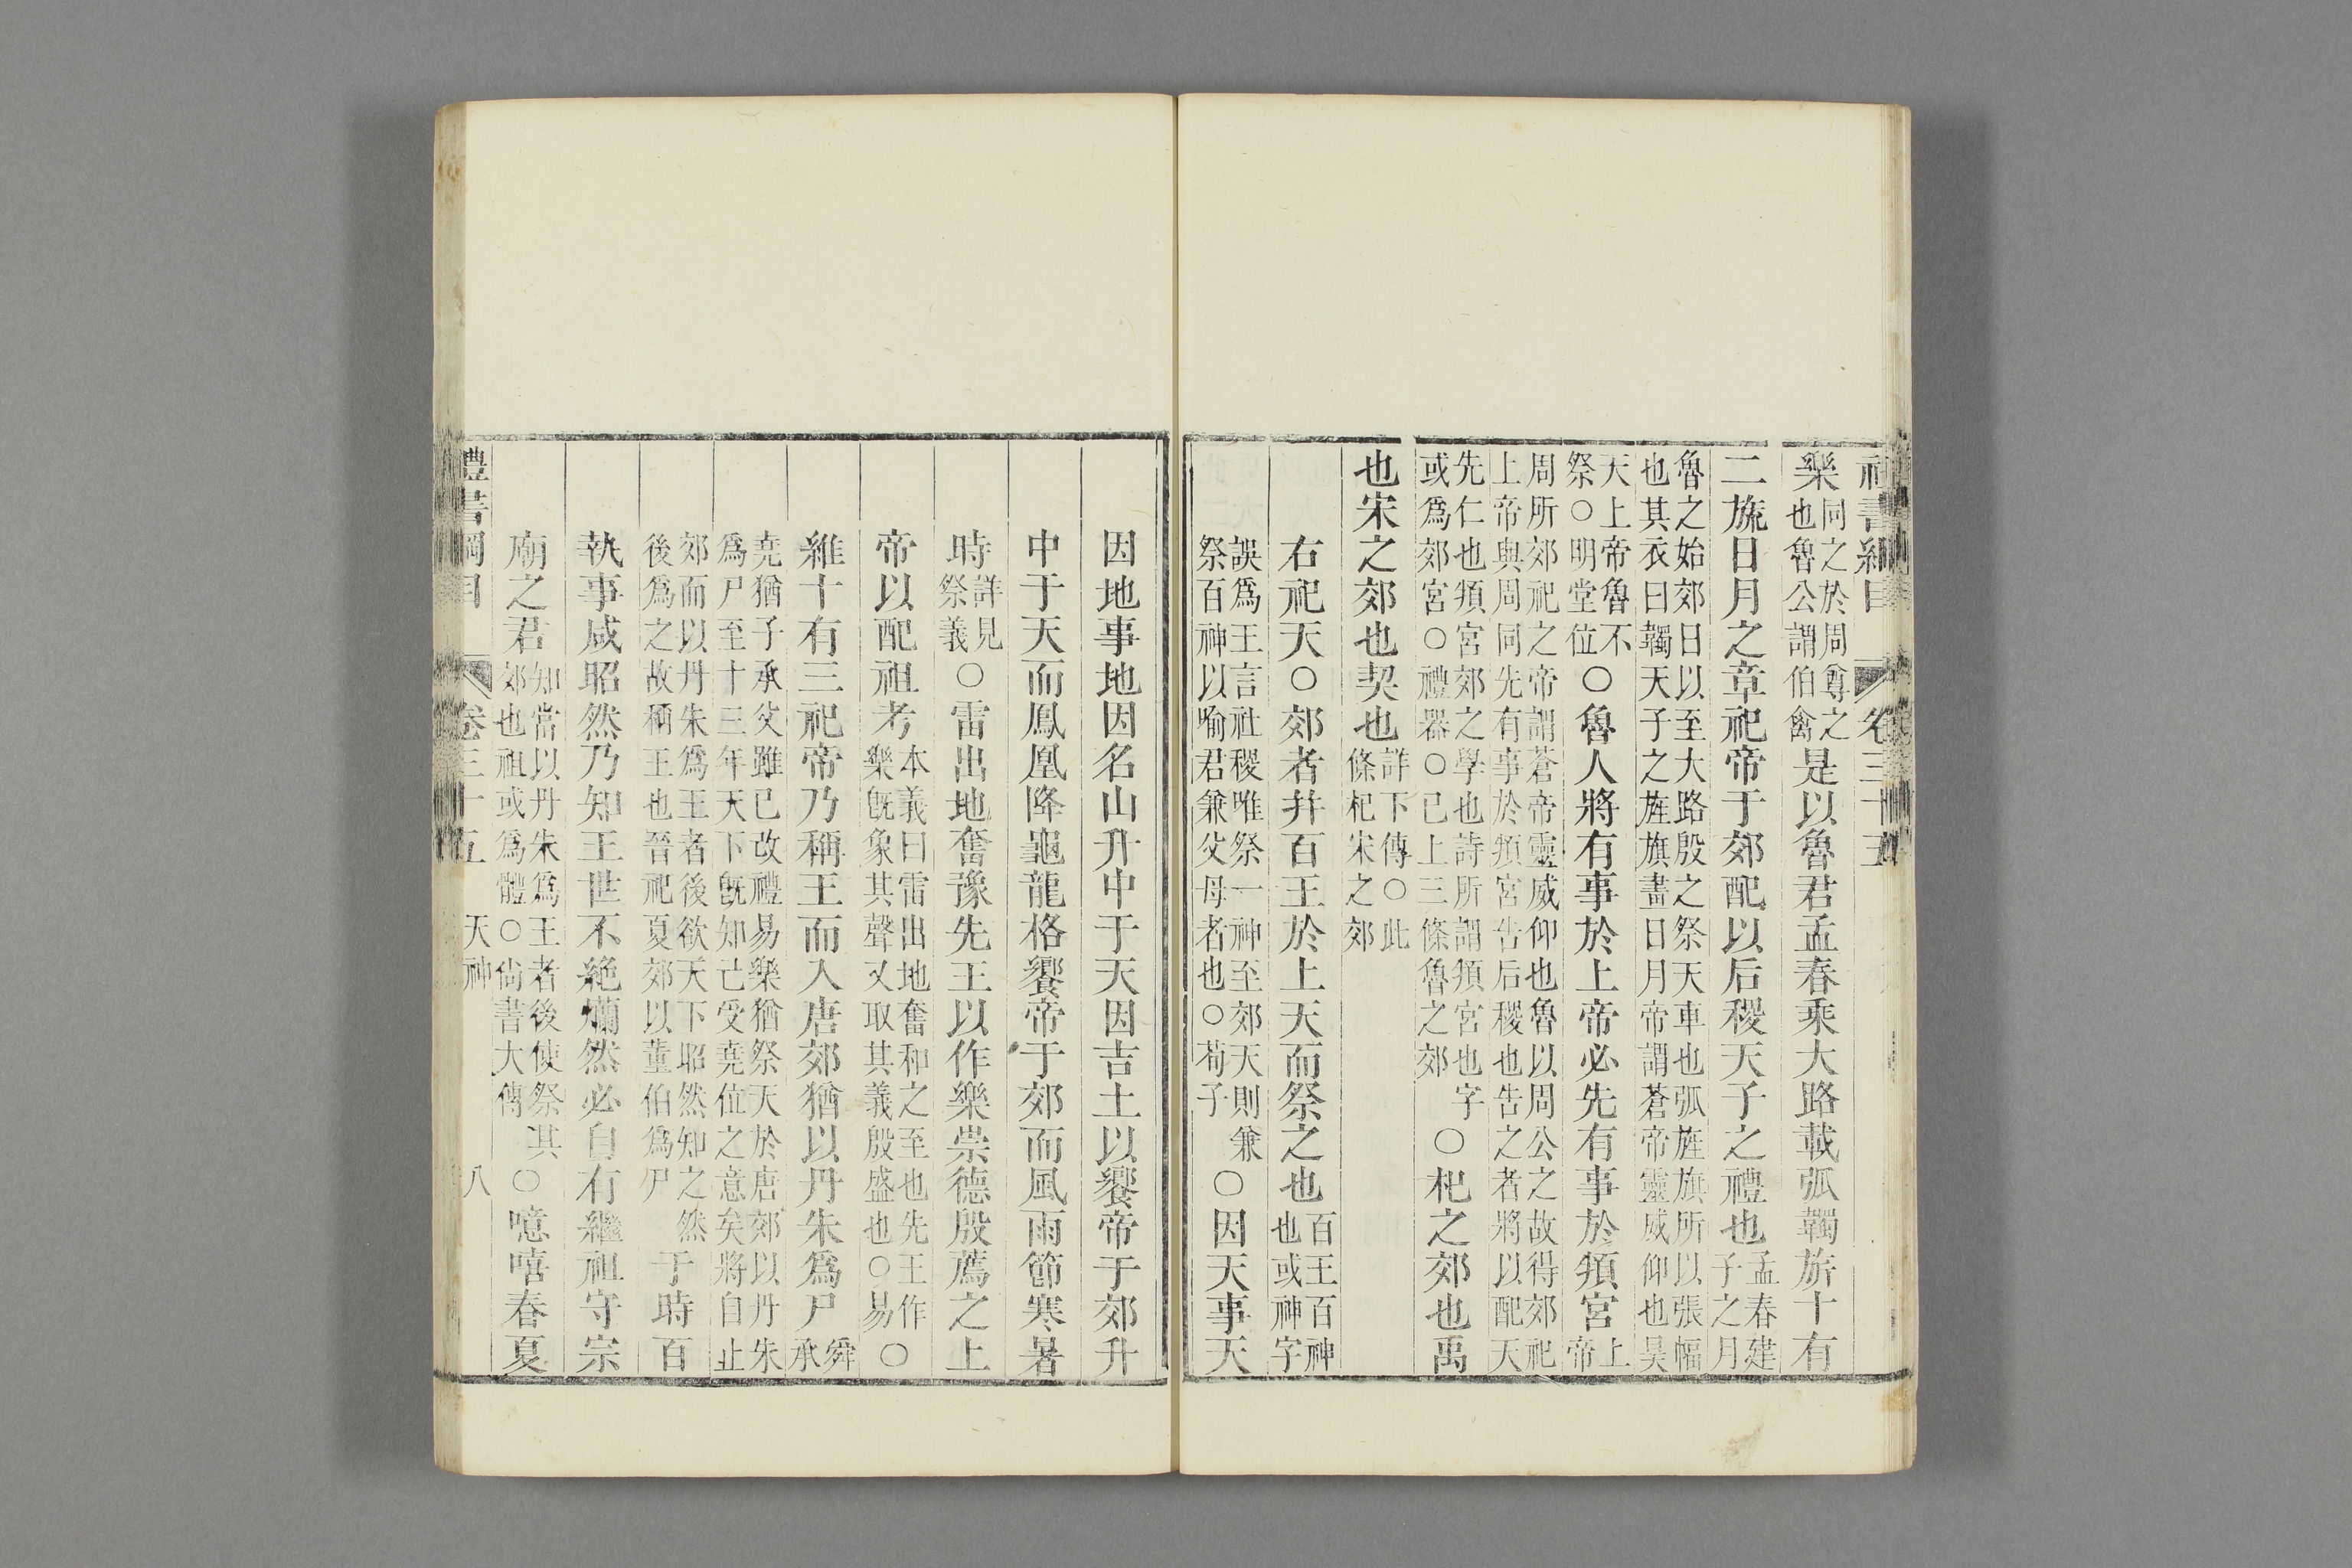 禮書綱目 卷三十五
樂同之於周尊之也魯公謂伯禽是以魯君孟春乘大路載弧韣旂十有
二旒日月之章祀帝于郊配以后稷天子之禮也孟春建子之月
魯之始郊日以至大路殷之祭天車也弧旌旗所以張幅也其衣曰韣天子之旌旗畫日月帝謂蒼帝靈威仰也昊
天上帝魯不祭○明堂位○魯人將有事於上帝必先有事於頖宮上帝
周所郊祀之帝謂蒼帝靈威仰也魯以周公之故得郊祀上帝與周同先有事於頖宮告后稷也告之者將以配天
先仁也頖宮郊之學也詩所謂頖宮也字或為郊宮○禮器○已上三條魯之郊○杞之郊也禹
也宋之郊也契也詳下傳○此條杞宋之郊
右祀天○郊者并百王於上天而祭之也百王百神也或神字
誤為王言社稷唯祭一神至郊天則兼祭百神以喻君兼父母者也○荀子○因天事天
因地事地因名山升中于天因吉土以饗帝于郊升
中于天而鳳凰降龜龍格饗帝于郊而風雨節寒暑
時詳見祭義○雷出地奮豫先王以作樂崇德殷薦之上
帝以配祖考本義曰雷出地奮和之至也先王作樂旣象其聲又取其義殷盛也○易○
維十有三祀帝乃稱王而入唐郊猶以丹朱爲尸舜承
堯猶子承父雖已改禮易樂猶祭天於唐郊以丹朱爲尸至十三年天下旣知已受堯位之意矣將自止
郊而以丹朱爲王者後欲天下昭然知之然後爲之故稱王也晉祀夏郊以董伯爲尸于時百
執事咸昭然乃知王世不絶爛然必自有繼祖守宗
廟之君知當以丹朱爲王者後使祭其郊也祖或爲體○尙書大傳○噫嘻春夏
禮書綱目 卷三十五 天神 八